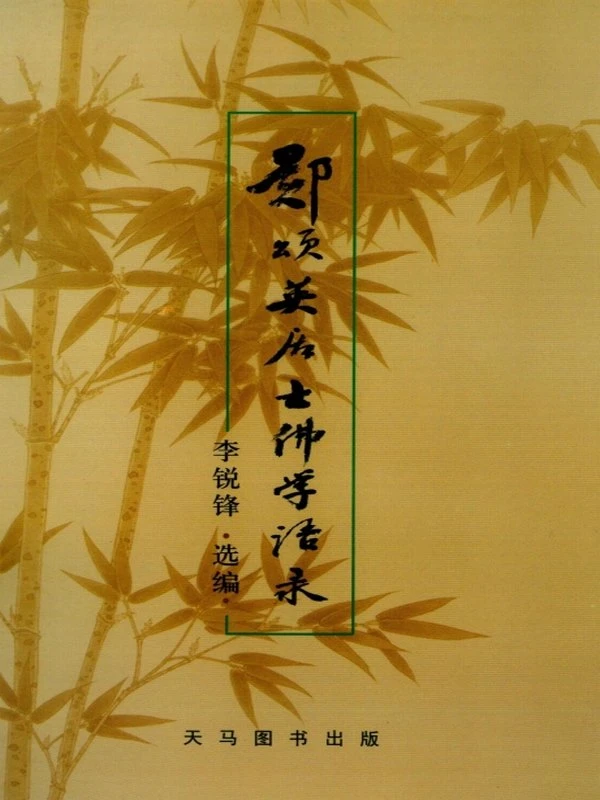 郑颂英居士佛学语录
李锐锋·选编·
天马图书出版